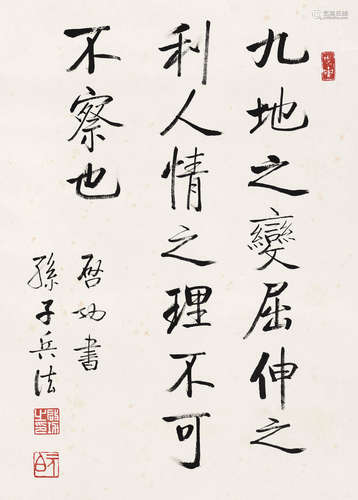 九地之變屈伸之
利人情之理不可
不察也
孫子兵法
啓功書